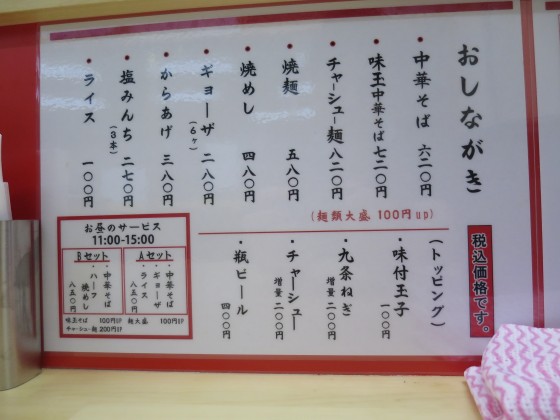 おしながき
税込価格です。
・中華そば 六二〇円
・味玉中華そば 七二〇円
・チャーシュー麺 八二〇円
・焼麺 五八〇円
・焼めし 四八〇円
・ギョーザ(6ヶ) 二八〇円
・からあげ 三八〇円
・塩みんち(3本) 二七〇円
・ライス 一〇〇円
(麺類大盛 100円up)
(トッピング)
・味付玉子 一〇〇円
・九条ねぎ 増量 二〇〇円
・チャーシュー 増量 二〇〇円
・瓶ビール 四〇〇円
お昼のサービス
11:00-15:00
Aセット
・中華そば
・ギョーザ
・ライス
八五〇円
Bセット
・中華そば
・ハーフ焼めし
八五〇円
味玉そば 100円UP 麺大盛 100円UP
チャーシュー麺 200円UP